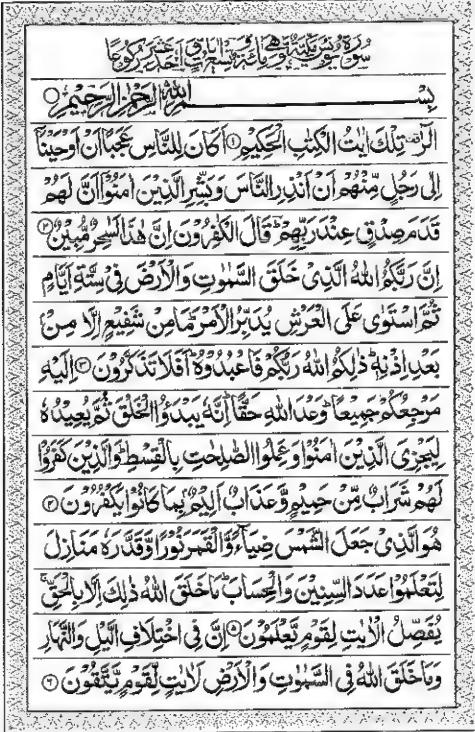 سورة يونس مكية وهى مائة وتسع ايات واحد عشر ركوعا
بِسْمِ اللّٰهِ الرَّحْمٰنِ الرَّحِيْمِ ۝
الٓرٰ تِلْكَ اٰيٰتُ الْكِتٰبِ الْحَكِيْمِ ۝۱ اَكَانَ لِلنَّاسِ عَجَبًا اَنْ اَوْحَيْنَاۤ
اِلٰى رَجُلٍ مِّنْهُمْ اَنْ اَنْذِرِ النَّاسَ وَبَشِّرِ الَّذِيْنَ اٰمَنُوْۤا اَنَّ لَهُمْ
قَدَمَ صِدْقٍ عِنْدَ رَبِّهِمْ ؕ قَالَ الْكٰفِرُوْنَ اِنَّ هٰذَا لَسٰحِرٌ مُّبِيْنٌ ۝۲
اِنَّ رَبَّكُمُ اللّٰهُ الَّذِيْ خَلَقَ السَّمٰوٰتِ وَالْاَرْضَ فِيْ سِتَّةِ اَيَّامٍ
ثُمَّ اسْتَوٰى عَلَى الْعَرْشِ يُدَبِّرُ الْاَمْرَ ؕ مَا مِنْ شَفِيْعٍ اِلَّا مِنْۢ
بَعْدِ اِذْنِهٖ ؕ ذٰلِكُمُ اللّٰهُ رَبُّكُمْ فَاعْبُدُوْهُ ؕ اَفَلَا تَذَكَّرُوْنَ ۝۳ اِلَيْهِ
مَرْجِعُكُمْ جَمِيْعًا ؕ وَعْدَ اللّٰهِ حَقًّا ؕ اِنَّهٗ يَبْدَؤُا الْخَلْقَ ثُمَّ يُعِيْدُهٗ
لِيَجْزِيَ الَّذِيْنَ اٰمَنُوْا وَعَمِلُوا الصّٰلِحٰتِ بِالْقِسْطِ ؕ وَالَّذِيْنَ كَفَرُوْا
لَهُمْ شَرَابٌ مِّنْ حَمِيْمٍ وَّعَذَابٌ اَلِيْمٌۢ بِمَا كَانُوْا يَكْفُرُوْنَ ۝۴
هُوَ الَّذِيْ جَعَلَ الشَّمْسَ ضِيَآءً وَّالْقَمَرَ نُوْرًا وَّقَدَّرَهٗ مَنَازِلَ
لِتَعْلَمُوْا عَدَدَ السِّنِيْنَ وَالْحِسَابَ ؕ مَا خَلَقَ اللّٰهُ ذٰلِكَ اِلَّا بِالْحَقِّ ۚ
يُفَصِّلُ الْاٰيٰتِ لِقَوْمٍ يَّعْلَمُوْنَ ۝۵ اِنَّ فِي اخْتِلَافِ الَّيْلِ وَالنَّهَارِ
وَمَا خَلَقَ اللّٰهُ فِي السَّمٰوٰتِ وَالْاَرْضِ لَاٰيٰتٍ لِّقَوْمٍ يَّتَّقُوْنَ ۝۶